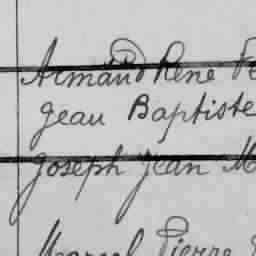 Armand René
Jean Baptiste
Joseph Jean M
Marcel Pierre